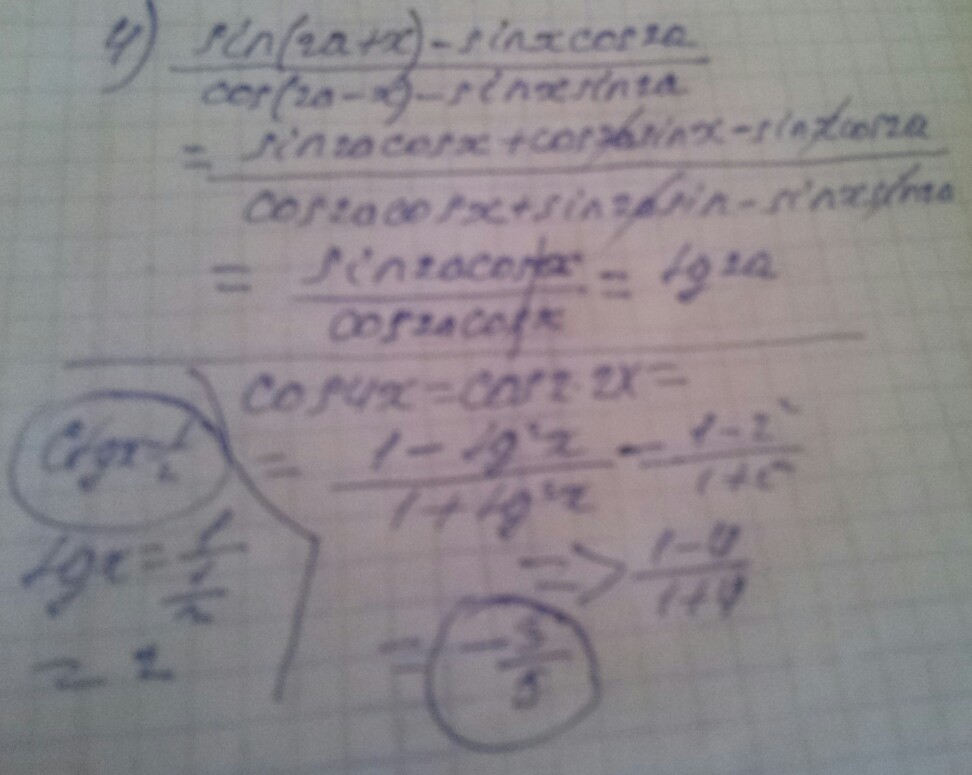 4) sin(2a+x)-sinxcos2a
cos(2a-x)-sinxsin2a
= sin2acosx+cos2asinx-sinxcos2a
cos2acosx+sin2asin-sinxsin2a
= sin2acosx / cos2acosx = tg2a
cos4x=cos2·2x=
= 1-tg²x / 1+tg²x = 1-2² / 1+2²
=> 1-4 / 1+4
= -3/5
Ctgx=1/2
tgx=1/(1/2)
= 2